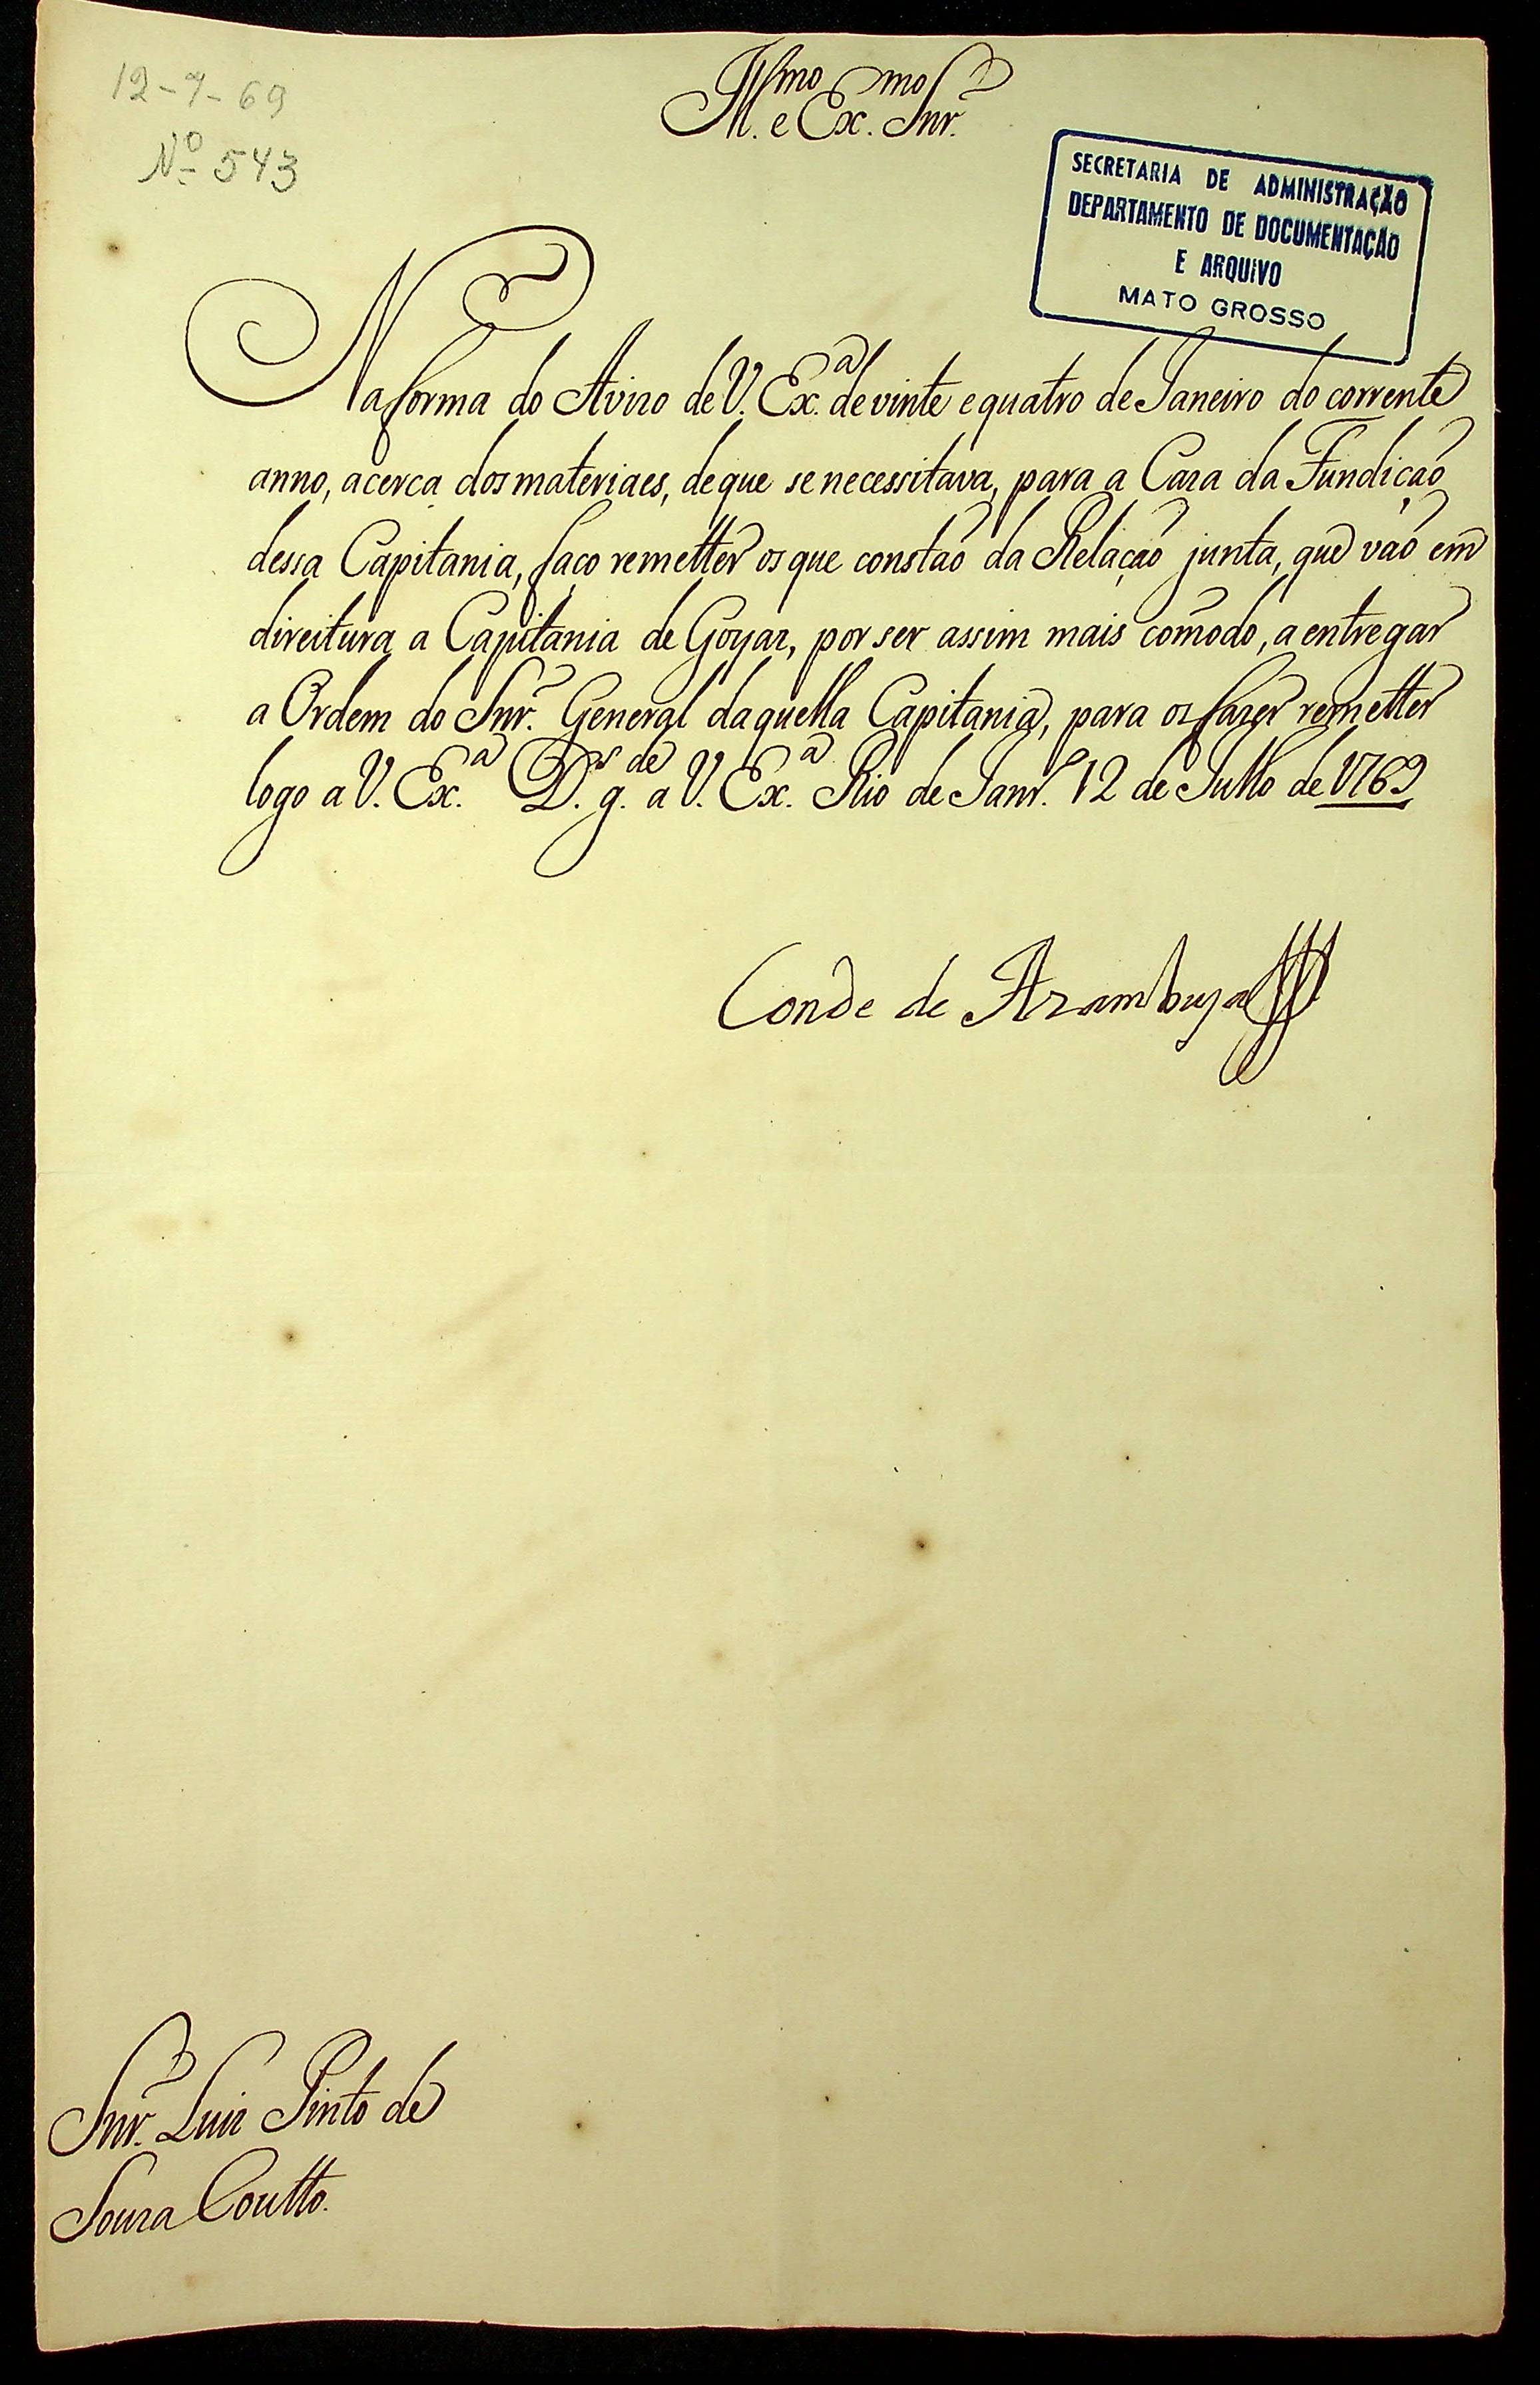 12-7-69
Nº 543
Ill.mo e Ex.mo Snr.
SECRETARIA DE ADMINISTRAÇÃO
DEPARTAMENTO DE DOCUMENTAÇÃO
E ARQUIVO
MATO GROSSO
Na forma do Avizo de V. Ex.a de vinte e quatro de Janeiro do corrente
anno, acerca dos materiaes, de que se necessitava, para a Caza da Fundição
dessa Capitania, faço remetter os que constaõ da Relaçaõ junta, que vaõ em
direitura a Capitania de Goyaz, por ser assim mais cõmodo, a entregar
a Ordem do Snr. General daquella Capitania, para os fazer remetter
logo a V. Ex.a D.s g.de a V. Ex.a Rio de Janr.o 12 de Julho de 1769
Conde de Azambuja
Snr. Luiz Pinto de
Souza Coutto.